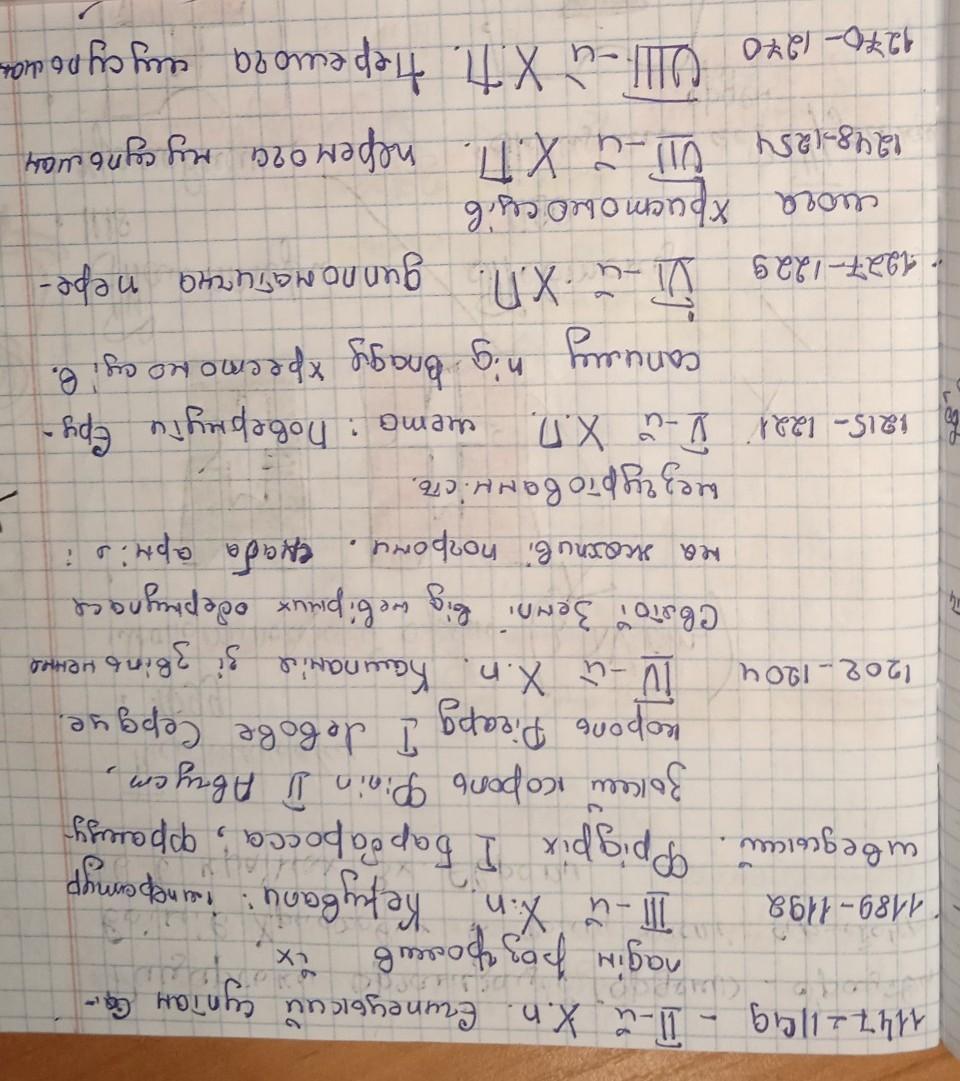 1147-1149 - II-й Х.п. Єгипетський султан Са-
ладін розгромив їх
1189-1192 III-й Х.п. Керували: імператур
шведський. Фрідріх I Барбаросса, Француз-
зький король Філіп II Август,
король Річард I Левове Сердце.
1202-1204 IV-й Х.п. Кампанія зі звільнення
Святої Землі від невірних обернулася
на жахливі погроми. слаба армія і
незгуртованність.
1215-1221 V-й Х.П. мета: Повернути Єру-
салиму під владу хрестоносців.
1227-1229 VI-й Х.П. дипломатична пере-
мога христоносців
1248-1254 VII-й Х.П. перемога мусульман
1270-1270 VIII-й Х.П. Перемога мусульман